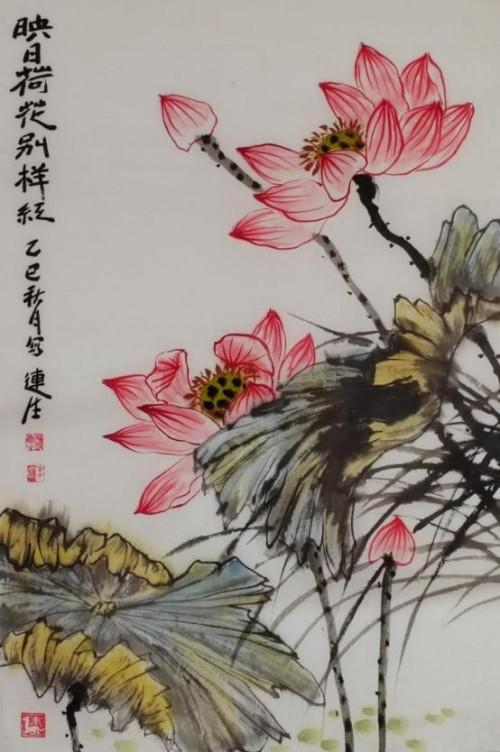 映日荷花别样红
乙巳秋月写连生